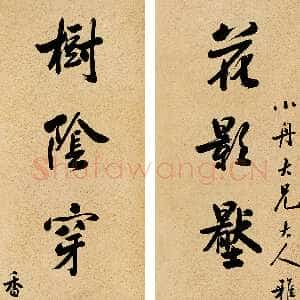 小舟大兄大人雅
花影壓
樹陰穿
香
Shufawang.CN